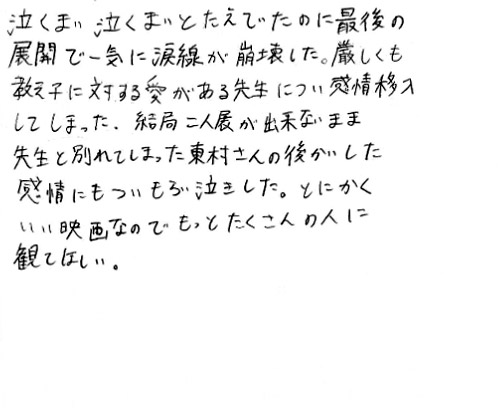 泣くまい 泣くまいとたえていたのに最後の
展開で一気に涙線が崩壊した。厳しくも
教え子に対する愛がある先生につい感情移入
してしまった、結局二人展が出来ないまま
先生と別れてしまった東村さんの後かいした
感情にもついもらい泣きした。とにかく
いい映画なのでもっとたくさんの人に
観てほしい。